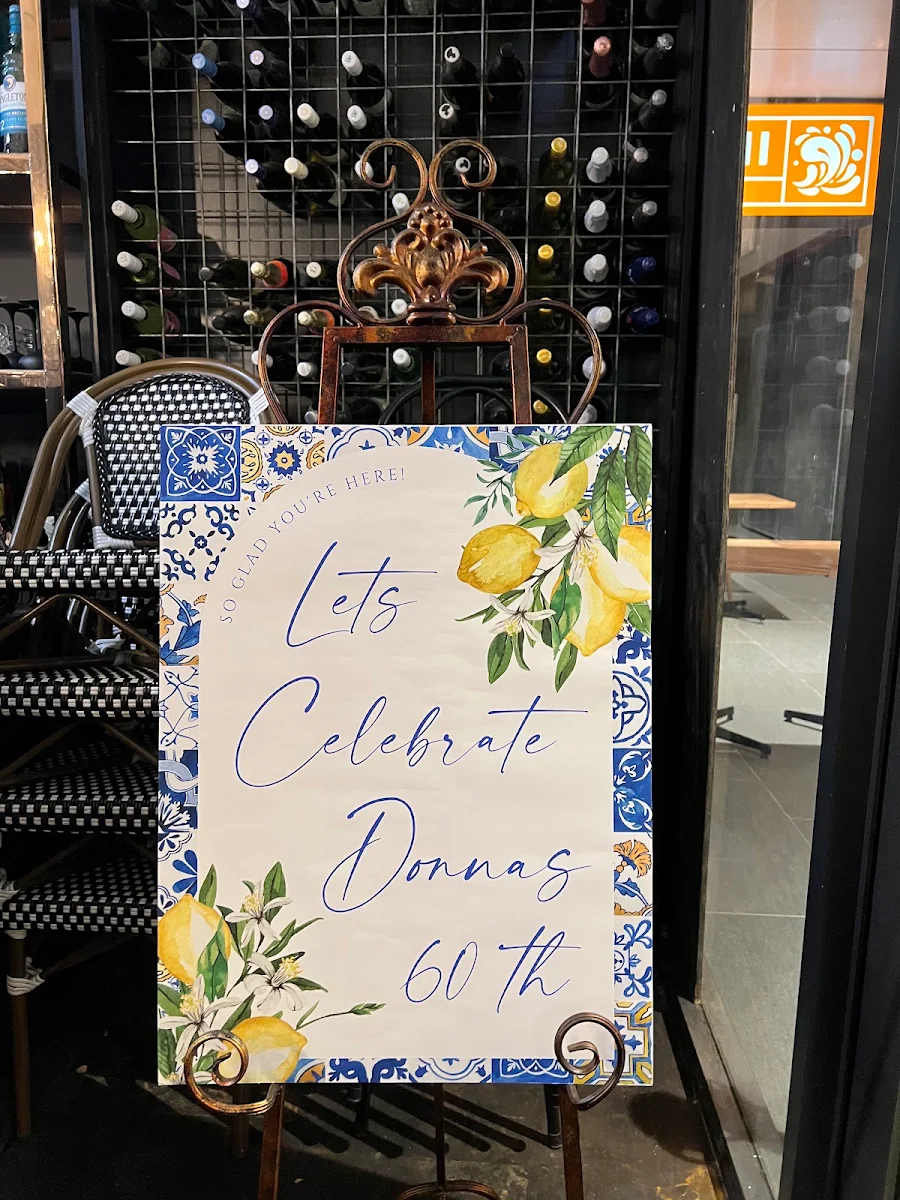 SO GLAD YOU'RE HERE!
Lets
Celebrate
Donnas
60 th